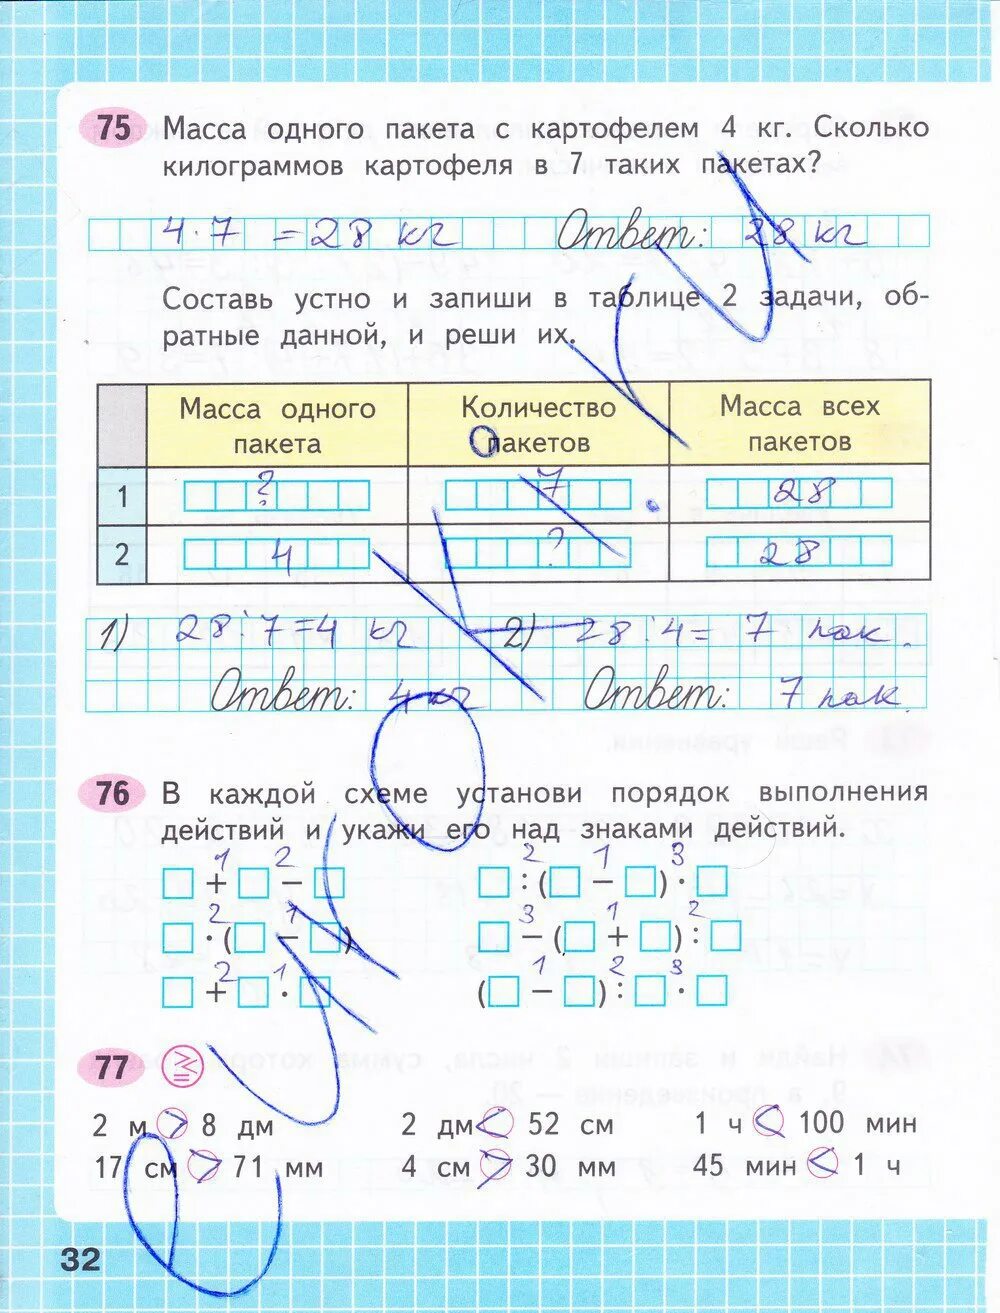 75 Масса одного пакета с картофелем 4 кг. Сколько
килограммов картофеля в 7 таких пакетах?
4·7 = 28 кг Ответ: 28 кг
Составь устно и запиши в таблице 2 задачи, об-
ратные данной, и реши их.
Масса одного пакета Количество пакетов Масса всех пакетов
1 ? 7 28
2 4 ? 28
1) 28:7=4 кг 2) 28:4= 7 пак.
Ответ: 4 кг Ответ: 7 пак.
76 В каждой схеме установи порядок выполнения
действий и укажи его над знаками действий.
1 2 2 1 3
□ + □ − □ □ : (□ − □) · □
2 1 3 1 2
□ · (□ − □) □ − (□ + □) : □
2 1 1 2 3
□ + □ · □ (□ − □) : □ · □
77
2 м > 8 дм 2 дм < 52 см 1 ч < 100 мин
17 см > 71 мм 4 см > 30 мм 45 мин < 1 ч
32